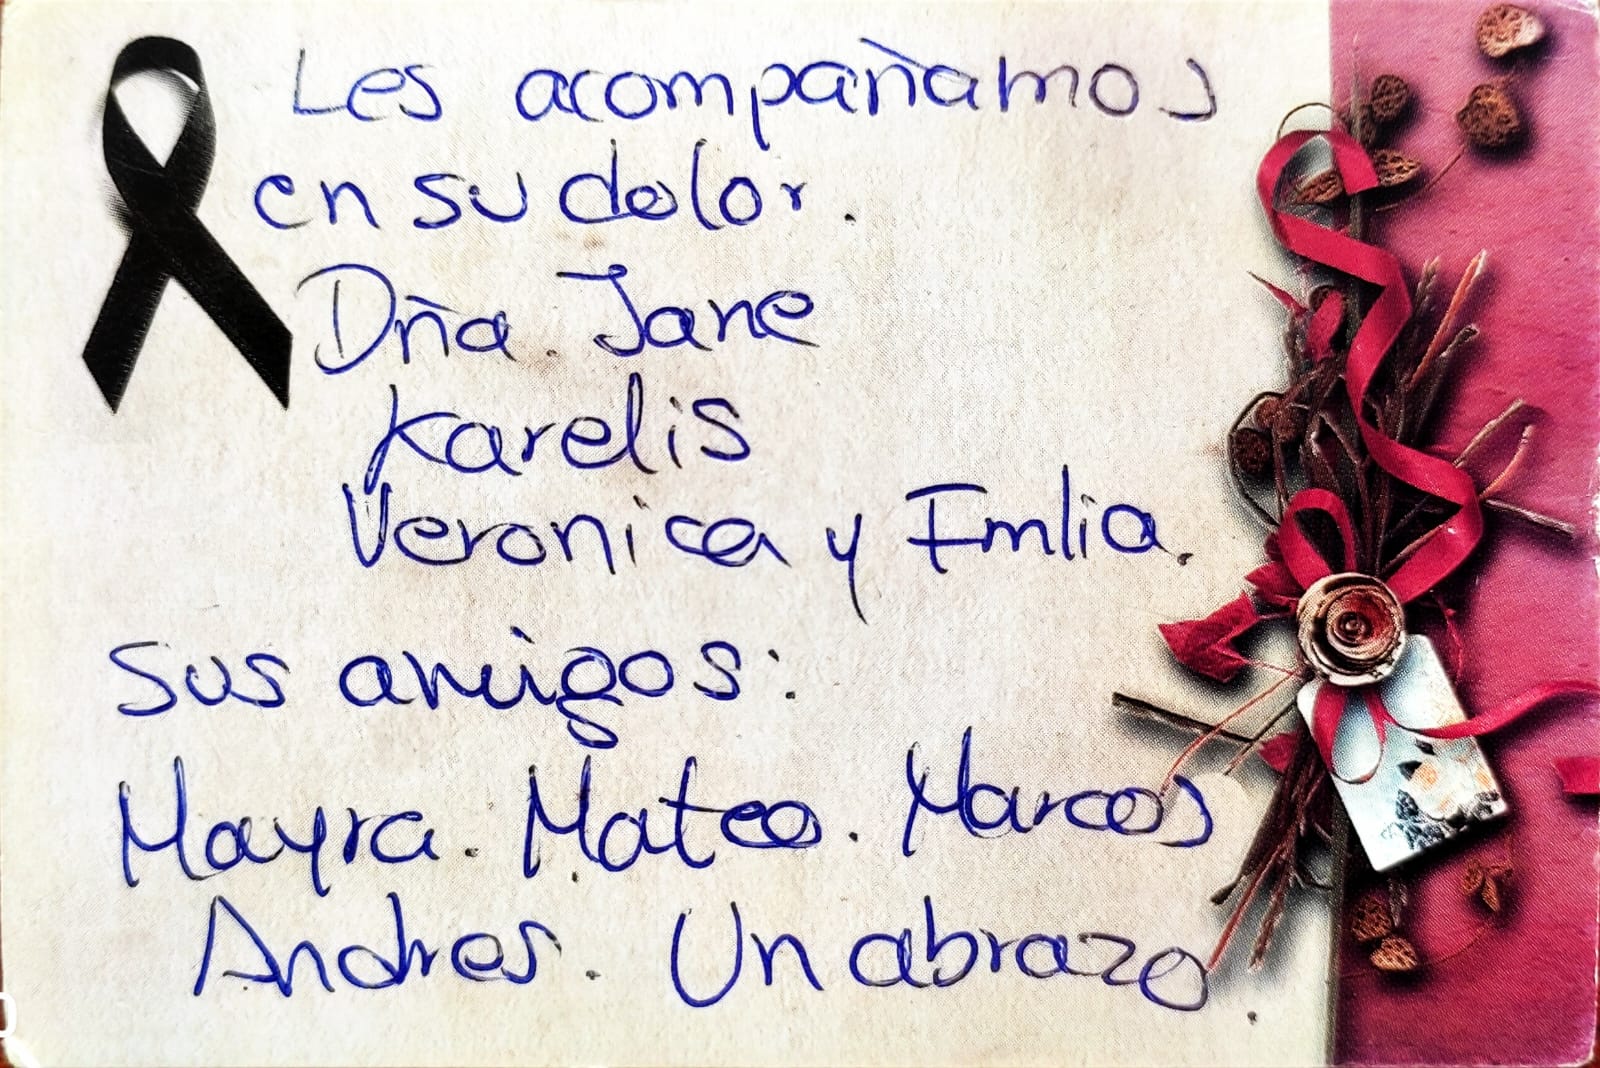 Les acompañamos
en su dolor.
Dña. Jane
Karelis
Veronica y Emlia.
Sus amigos:
Mayra. Mateo. Marcos
Andres. Un abrazo.